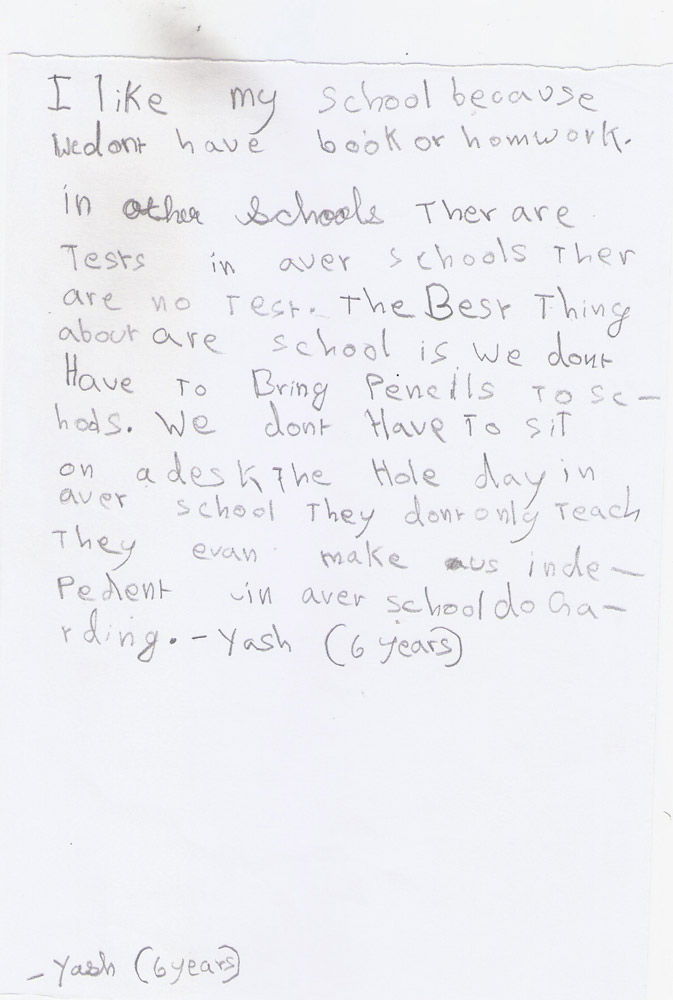 I like my school because
We dont have book or homwork.
in other schools Ther are
Tests in aver schools Ther
are no Test. The Best Thing
about are school is we dont
Have To Bring Pencils To sc-
hools. We dont Have To sit
on a desk The Hole day in
aver school They dont only Teach
They evan make us inde-
Pedent in aver school do Ga-
rding. - Yash (6 years)
- Yash (6 years)